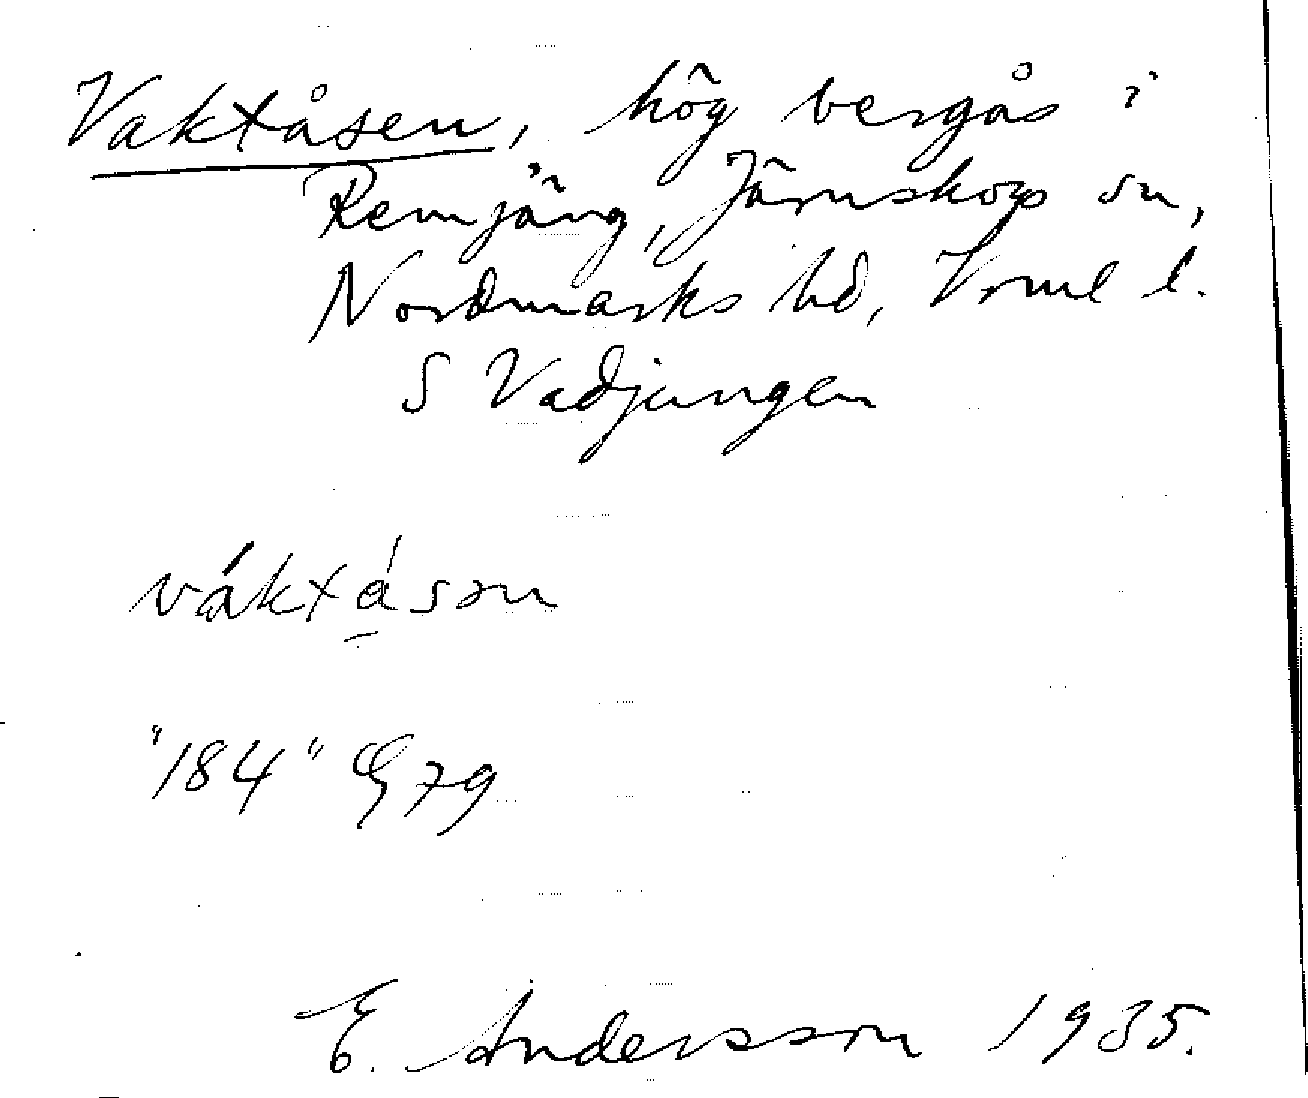 Vaktåsen, hög bergås i
Remjäng, Järnskogs sn,
Nordmarks hd, Vrml l.
S Vadjungen
váktásən
"184" G 79
E. Andersson 1935.